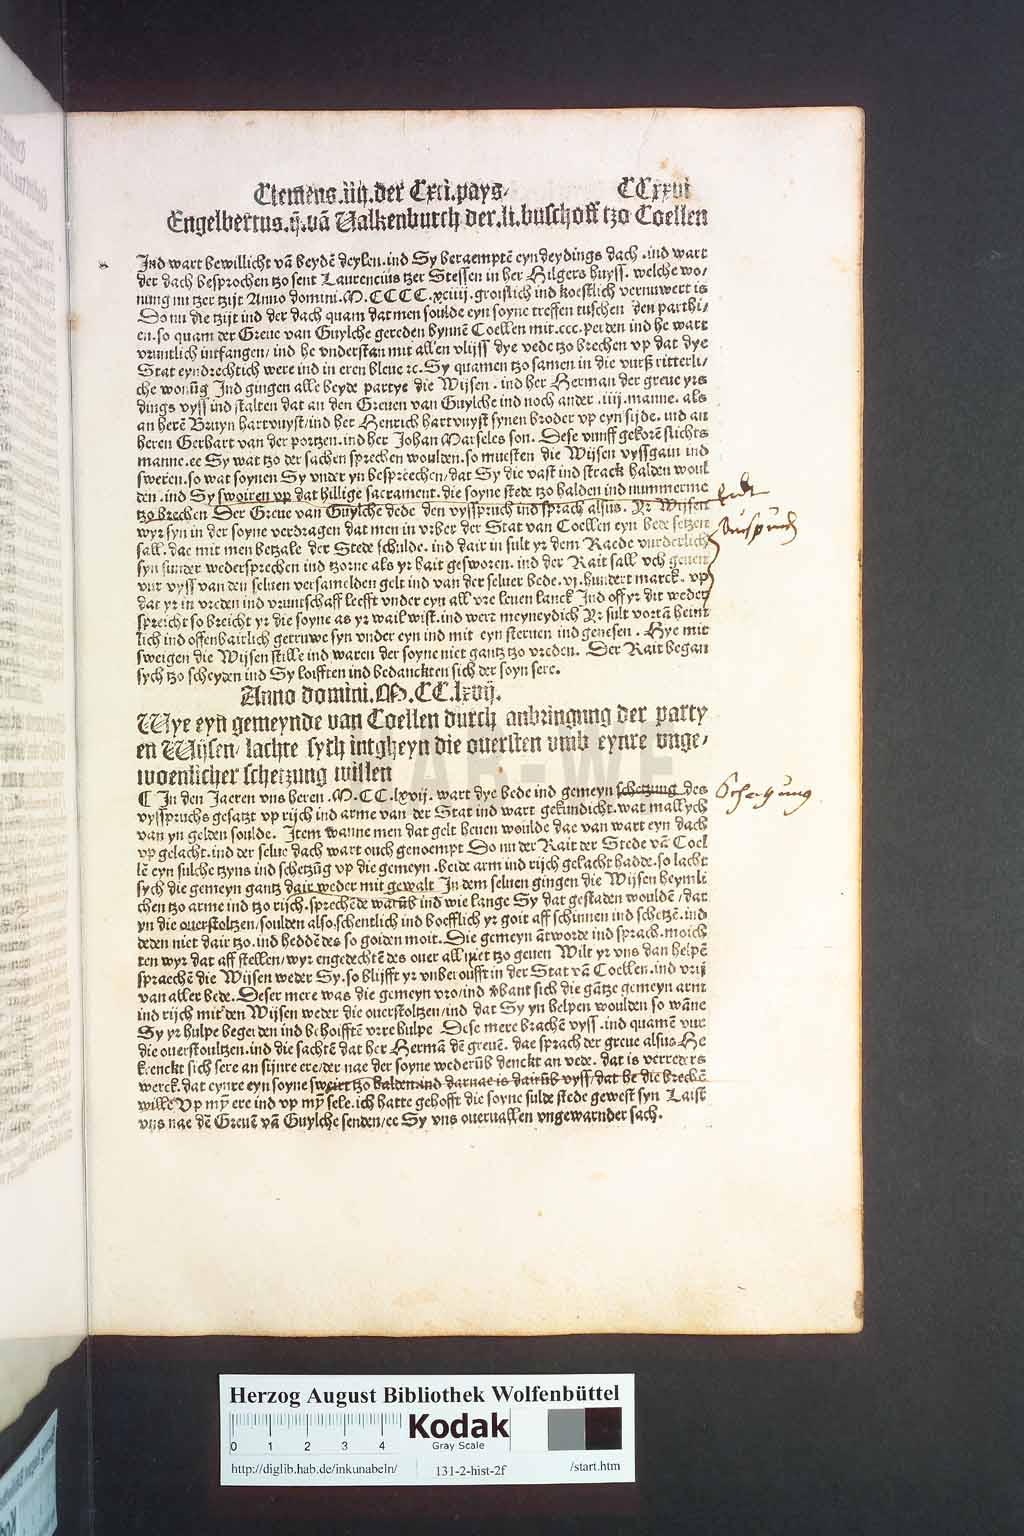 Clemens.iiij.der Cxci.pays. CCxxvi
Engelbertus.ij.vā Valkenburch der.li.buschoff tzo Coellen
Jnd wart bewillicht vā beydē deylen.ind Sy beraemptē eyn deydings dach.ind wart
der dach besprochen tzo sent Laurencius tzer Stessen in her Hilgers huyss. welche wo/
nung nu tzer tzijt Anno domini.M.CCCC.xciiij.groislich ind koestlich vernuwert is
Do nu die tzijt ind der dach quam dat men soulde eyn soyne treffen tuschen den parthi/
en.so quam der Greue van Guylche gereden bynnē Coellen mit.ccc.perden ind he wart
vruntlich intfangen/ind he vnderstan mit allen vlijss dye vede tzo brechen vp dat dye
Stat eyndrechtich were ind in eren bleue rc. Sy quamen tzo samen in die vurß ritterli/
che wonūg Jnd gingen alle beyde partye die Wijsen.ind her Herman der greue yrs
dings vyss ind stalten dat an den Greuen van Guylche ind noch ander.iiij.manne. als
an herē Bruyn hartvuyst/ind her Henrich hartvuyst synen broder vp eyn sijde. ind an
heren Gerhart van der portzen.ind her Johan Marseles son. Dese vunff gekorē slichts
manne.ee Sy wat tzo der sachen sprechen woulden.so muesten die Wijsen vyssgain ind
sweren.so wat soynen Sy vnder yn besprechen/dat Sy die vast ind strack halden woul
den.ind Sy swoiren vp dat hillige sacrament.die soyne stede tzo halden ind nummerme
tzo brechen Der Greue van Guylche dede den vysspruch ind sprach alsus. Yr Wijsen
wyr syn in der soyne verdragen dat men in vrber der Stat van Coellen eyn bede setzen
sall.dae mit men betzale der Stede schulde.ind dair in sult yr dem Raede vurderlich
syn sunder wedersprechen ind tzorne als yr hait gesworen.ind der Rait sall vch geuen
vur vyss van den seluen versamelden gelt ind van der seluer bede.vj.hundert marck. vp
dat yr in vreden ind vruntschaff leefft vnder eyn all vre leuen lanck Jnd off yr dit weder
spreicht so breicht yr die soyne as yr wail wist.ind wert meyneydich Yr sult vortā heim
lich ind offenbairlich getruwe syn vnder eyn ind mit eyn steruen ind genesen. Hye mit
sweigen die Wijsen stille ind waren der soyne niet gantz tzo vreden. Der Rait began
sych tzo scheyden ind Sy loifften ind bedanckten sich der soyn sere.
Anno domini.M.CC.lxvij.
Wye eyn gemeynde van Coellen durch anbringung der party
en Wijsen/lachte sych intgheyn die ouersten vmb eynre vnge/
woenlicher schetzung willen
¶ Jn den Jaeren vns heren.M.CC.lxvij. wart dye bede ind gemeyn schetzung des
vysspruchs gesatzt vp rijch ind arme van der Stat ind wart gekundicht.wat mallych
van yn gelden soulde. Jtem wanne men dat gelt heuen woulde dae van wart eyn dach
vp gelacht.ind der selue dach wart ouch genoempt Do nu der Rait der Stede vā Coel
lē eyn sulche tzyns ind schetzūg vp die gemeyn.beide arm ind rijch gelacht hadde.so lacht
sych die gemeyn gantz dair weder mit gewalt Jn dem seluen gingen die Wijsen heymli
chen tzo arme ind tzo rijch.sprechēde warūb ind wie lange Sy dat gestaden wouldē/dat
yn die ouerstoltzen/soulden also.schentlich ind boefflich yr goit aff schinnen ind schetzē.ind
deden niet dair tzo.ind heddē des so goiden moit. Die gemeyn ātworde ind sprach.moich
ten wyr dat aff stellen/wyr engedechtē des ouer all niet tzo geuen Wilt yr vns dan helpē
spraechē die Wijsen weder Sy.so blijfft yr vnberoufft in der Stat vā Coellen.ind vrij
van aller bede. Deser mere was die gemeyn vro/ind vbant sich die gātze gemeyn arm
ind rijch mit den Wijsen weder die ouerstoltzen/ind dat Sy yn helpen woulden so wāne
Sy yr hulpe begerden ind behoifftē vrre hulpe Dese mere brachē vyss.ind quamē vur
die ouerstoultzen.ind die sachtē dat her Hermā dē greuē. dae sprach der greue alsus He
krenckt sich sere an sijnre ere/der nae der soyne wederūb denckt an vede. dat is verreders
werck.dat eynre eyn soyne sweirt tzo halden.ind darnae is dairūb vyss/dat he die brechē
wille Vp mỹ ere ind vp mỹ sele.ich hatte gehofft die soyne sulde stede gewest syn Laist
vns nae dē Greuē vā Guylche senden/ee Sy vns ouervallen vngewarnder sach.
Schatzung
Herzog August Bibliothek Wolfenbüttel
0 1 2 3 4
Kodak
Gray Scale
http://diglib.hab.de/inkunabeln/ 131-2-hist-2f /start.htm